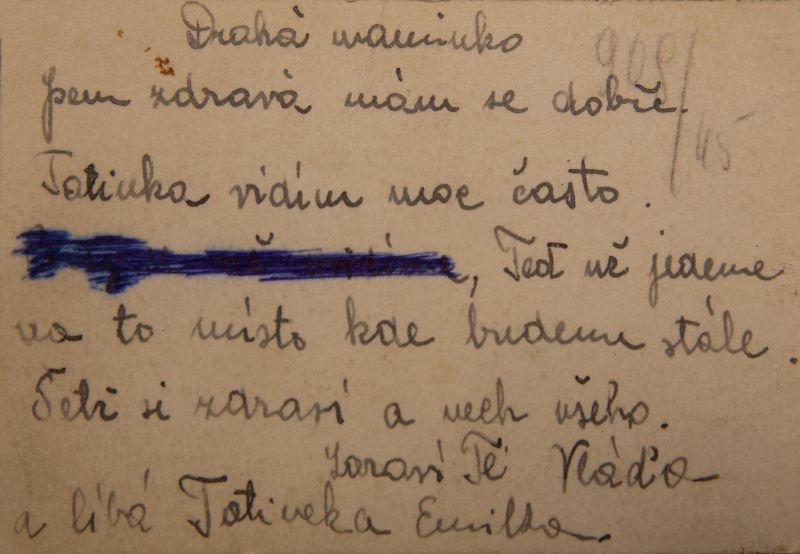 Drahá maminko
Jsem zdravá mám se dobře.
Tatínka vidím moc často.
, Teď už jedeme
na to místo kde budem stále.
Šetř si zdraví a nech všeho.
Zdraví Tě Vláďa
a líbá Tatineka Emilka.